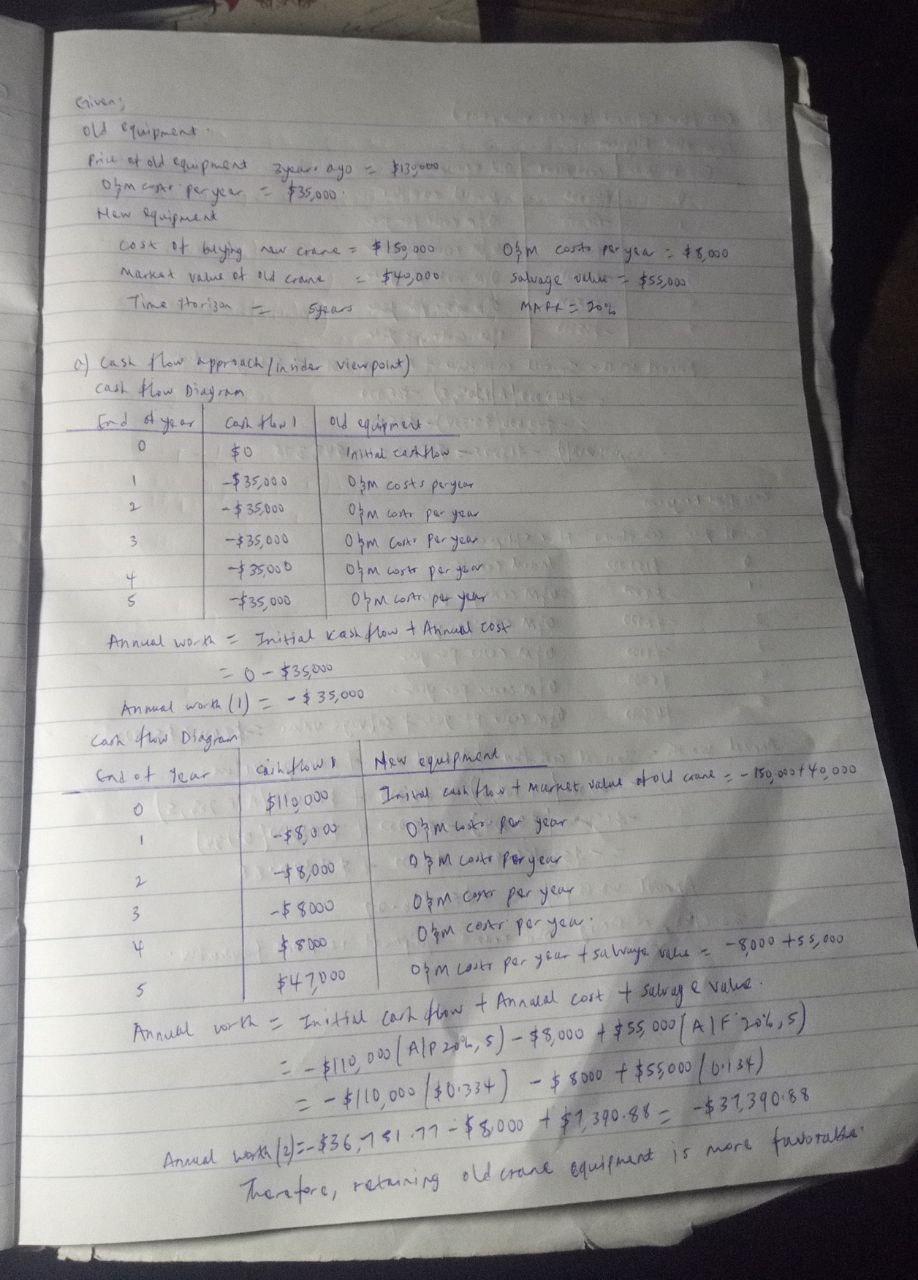 Given;
Old equipment.
Price of old equipment 3years ago = $130,000
O&M costs per year = $35,000.
New equipment
Cost of buying new crane = $150,000 O&M costs per year = $8,000
Market value of old crane = $40,000 Salvage value = $55,000
Time Horizon = 5years MARR = 20%
a) Cash flow approach (insider viewpoint)
Cash flow Diagram
End of year Cash flow 1 Old equipment
0 $0 Initial cashflow
1 -$35,000 O&M costs per year
2 -$35,000 O&M costs per year
3 -$35,000 O&M costs per year
4 -$35,000 O&M costs per year
5 -$35,000 O&M costs per year
Annual worth = Initial cash flow + Annual cost
= 0 - $35,000
Annual worth (1) = -$35,000
Cash flow Diagram
End of Year Cash flow New equipment
0 $110,000 Initial cash flow + market value of old crane = -150,000+40,000
1 -$8,000 O&M costs per year
2 -$8,000 O&M costs per year
3 -$8000 O&M costs per year
4 $8000 O&M costs per year.
5 $47,000 O&M costs per year + salvage value = -8,000 +55,000
Annual worth = Initial cash flow + Annual cost + Salvage value.
= -$110,000 (A|P 20%, 5) - $8,000 + $55,000 (A|F 20%, 5)
= -$110,000 ($0.334) - $8000 + $55,000 (0.134)
Annual worth (2) = -$36,781.77 - $8000 + $7,390.88 = -$37,390.88
Therefore, retaining old crane equipment is more favorable.